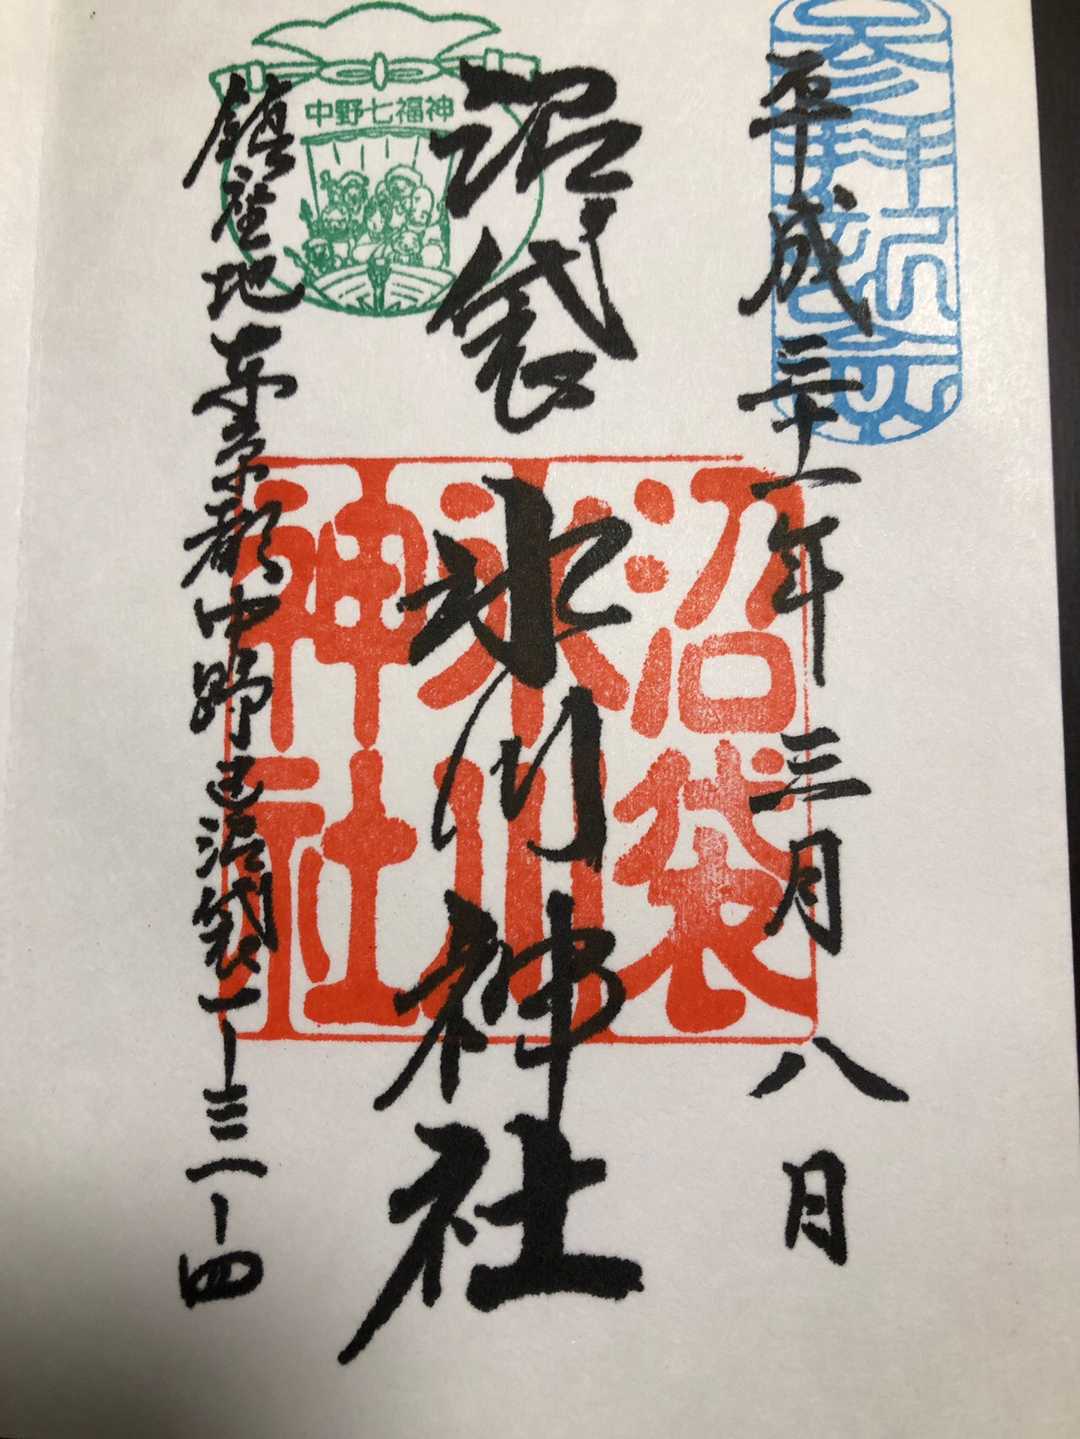 平成三十一年三月八日
沼袋氷川神社
鎮座地東京都中野区沼袋一ー三一ー四
中野七福神
沼袋
氷川
神社